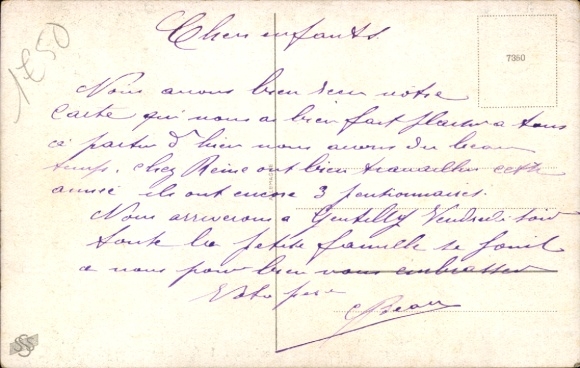 Chers enfants
1€50
7380
Nous avons bien recu votre
carte qui nous a bien fait plaisir a tous
a partir d'hier nous avons du beau
temps. chez Reine ont bien travailler cette
année ils ont encore 3 pentionnaires.
Nous arriverons a Gentilly Vendredi soir
toute la petite famille se joint
a nous pour bien vous embrasser
Votre pere
SSS